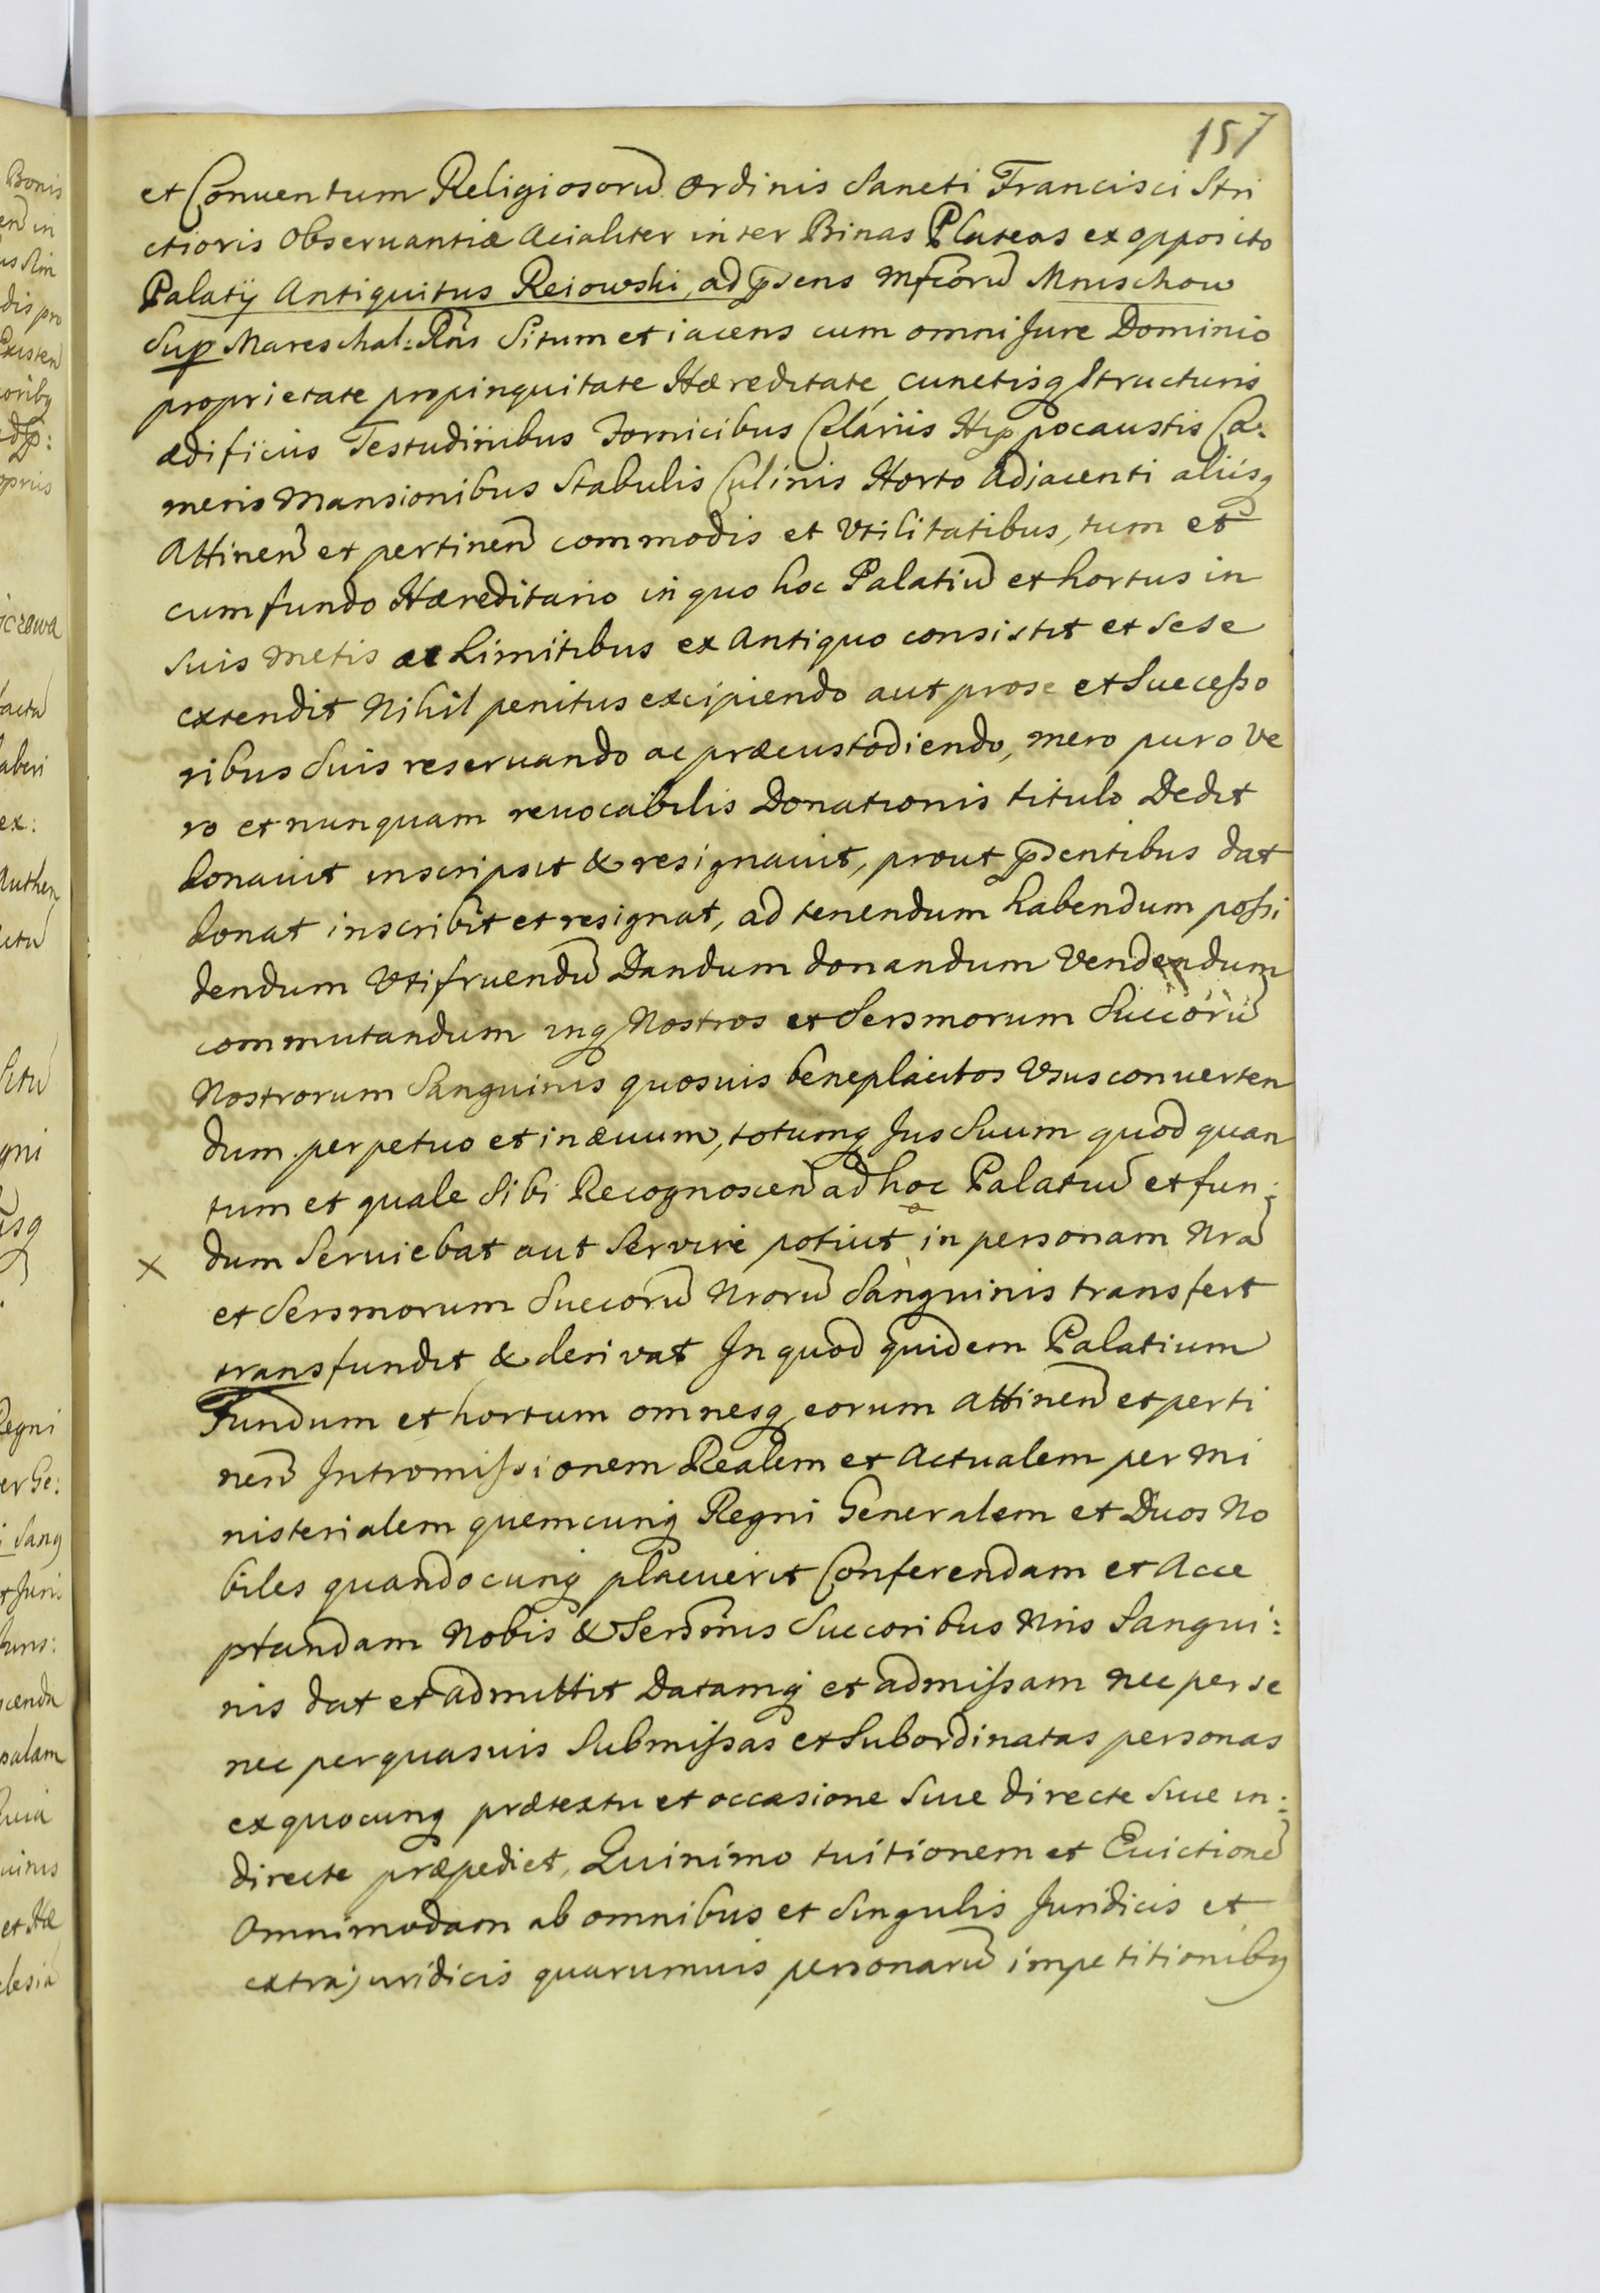 157
et Conuentum Religiosorū Ordinis Sancti Francisci Stri
ctioris Obseruantiæ Acialiter inter Binas Plateas ex opposito
Palatij Antiquitus Reiowski, ad p̄sens Mfcorū Mnischow
Sup Mareschal: Rñs Situm et iacens cum omni Jure Dominio
proprietate propinquitate Hæreditate, cunctisq Structuris
ædificiis Testudinibus Fornicibus Celariis Hyppocaustis Ca:
meris Mansionibus Stabulis Culinis Horto Adiacenti aliisq
Attinen̄ et pertinen̄ commodis et Vtilitatibus, tum et
cum fundo Hæreditario in quo hoc Palatiū et hortus in
suis Metis ac Limitibus ex Antiquo consistit et sese
extendit Nihil penitus excipiendo aut pro se et Successo
ribus Suis reseruando ac præcustodiendo, mero puro Ve
ro et nunquam reuocabilis Donationis titulo Dedit
donauit inscripsit & resignauit, prout p̄sentibus dat
donat inscribit et resignat, ad tenendum habendum possi
dendum Vtifruendū Dandum donandum Vendendum
commutandum inq Nostros et Sersmorum Succorū
Nostrorum Sanguinis quosuis beneplacitos Vsus conuerten
dum perpetuo et in æuum, totumq Jus Suum quod quan
tum et quale Sibi Recognoscen̄ ad hoc Palatiū et fun:
× dum Seruiebat aut Servire potuit in personam Nrā
et Sersmorum Succorū Nrorū Sanguinis transfert
transfundit & derivat In quod quidem Palatium
Fundum et hortum omnesq eorum attinen̄ et perti
nen̄ Intromissionem Realem et Actualem per Mi
nisterialem quemcunq Regni Generalem et Duos No
biles quandocunq placuerit Conferendam et Acce
ptandam Nobis & Sersmis Succoribus Nris Sangui:
nis dat et admittit Datamq et admissam nec per se
nec per quasuis Submissas et Subordinatas personas
ex quocunq prætextu et occasione Siue directe Siue in:
directe præpediet, Quinimo tuitionem et Euictionē
Omnimodam ab omnibus et Singulis Juridicis et
extrajuridicis quarumuis personarū impetitionibq